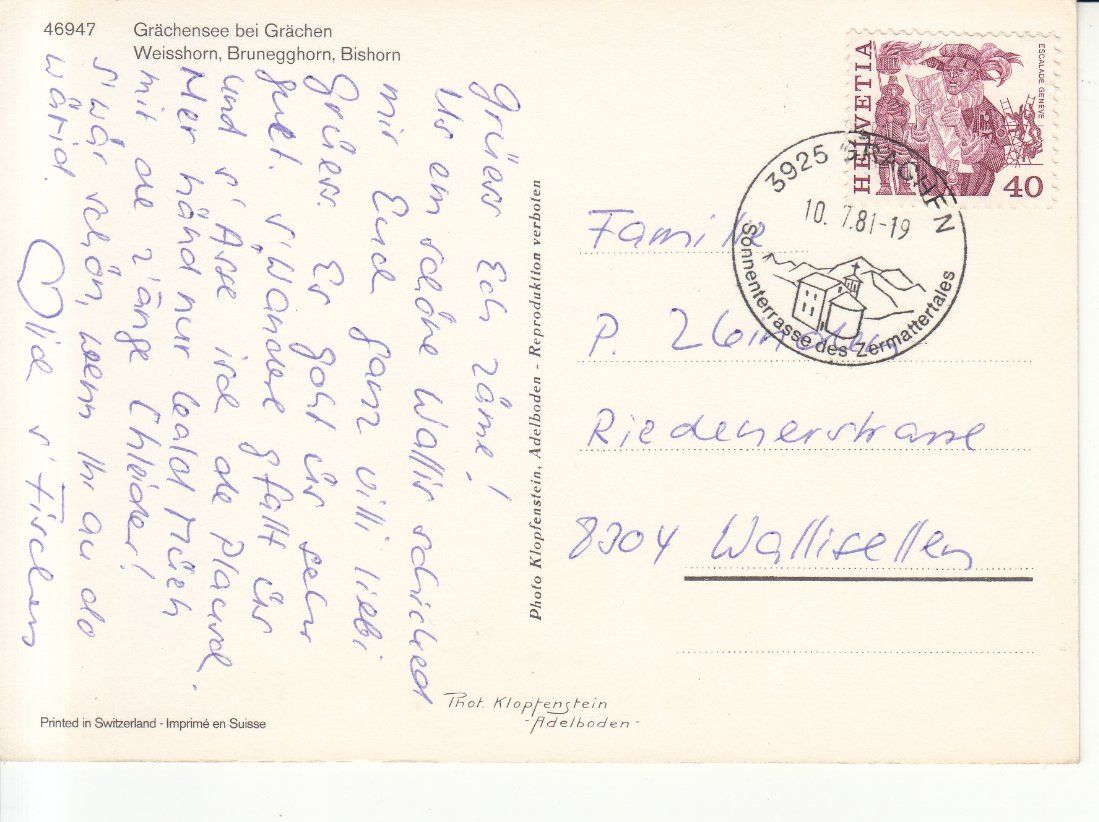 46947 Grächensee bei Grächen
Weisshorn, Brunegghorn, Bishorn
Grüess Ech zäme!
Us em schöne Wallis schicked
mir Euch ganz villi liebi
Grüess. Es gaht üs sehr
guet. s'Wandere gfallt üs
und s'Ässe isch de Plausch.
Mer händ nur bald Müeh
mit de z'änge Chleider!
s'wär schön, wenn Ihr au do
wärid.
s'Fischers
Photo Klopfenstein, Adelboden - Reproduktion verboten
HELVETIA
ESCALADE GENÈVE
40
3925 GRÄCHEN
10. 7.81-19
Sonnenterrasse des Zermattertales
Familie
P.
Riedenerstrasse
8304 Wallisellen
Phot. Klopfenstein
-Adelboden-
Printed in Switzerland - Imprimé en Suisse